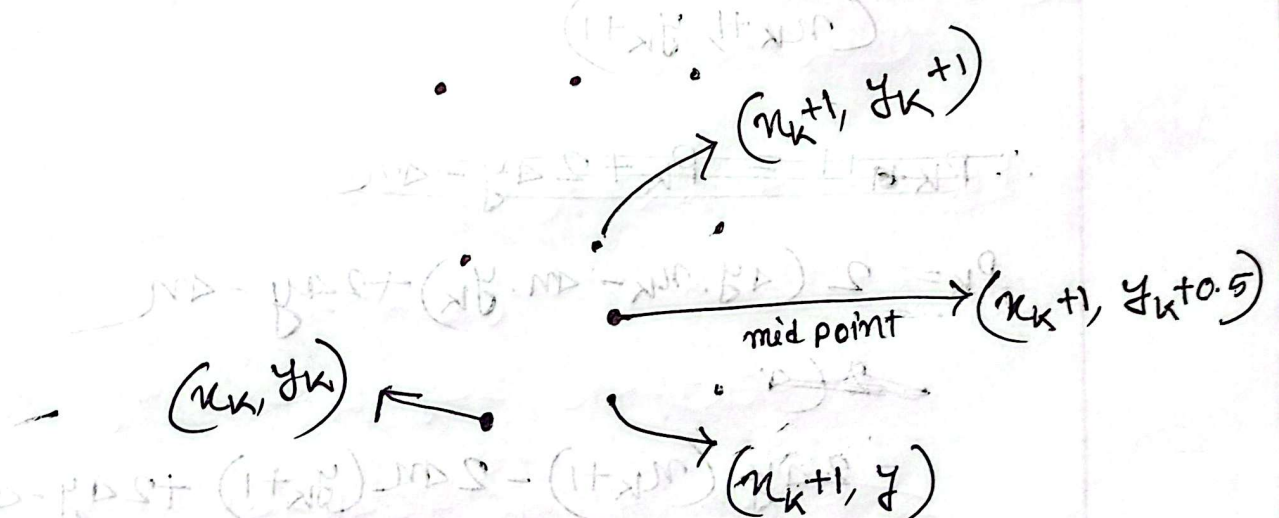 (x_k+1, y_k+1)
mid point (x_k+1, y_k+0.5)
(x_k, y_k)
(x_k+1, y)